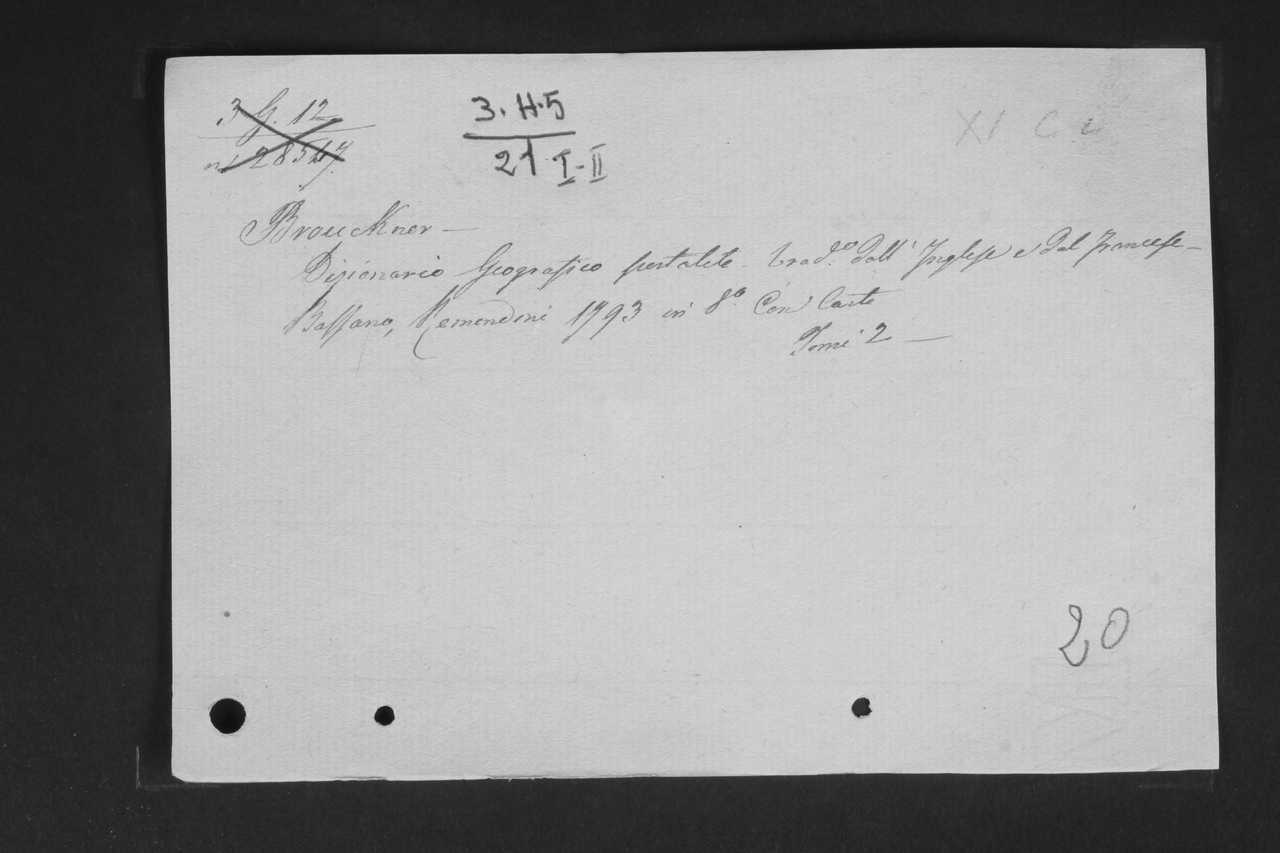 3 G. 12
n. 28547
3. H. 5
21 I-II
XI C
Brouckner —
Dizionario Geografico portatile trad.º dall' Inglese e dal Francese —
Bassano, Remondini 1793 in 8º Con Carte
Tomi 2 —
20